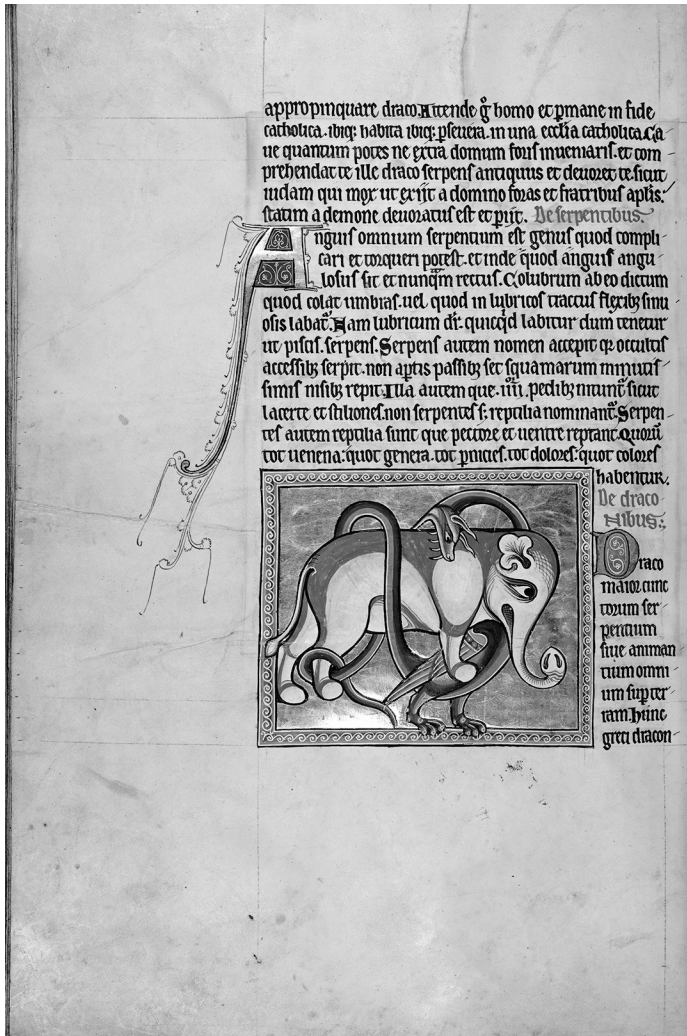 appropinquare draco. Attende g̊ homo et p̱mane in fide
catholica. ibiq; habita ibiq; p̱seuera. in una eccl̄ia catholica. Ca
ue quantum potes ne extra domum foris inueniaris. et com
prehendat te ille draco serpens antiquus et deuoret te. sicut
iudam qui mox ut exiit a domino foras et fratribus apl̄is.
statim a demone deuoratus est et p̱iit. De serpentibus.
Anguis omnium serpentium est genus quod compli
cari et torqueri potest. et inde quod anguis angu
losus sit et nunq̄m rectus. Colubrum ab eo dictum
quod colat umbras. uel quod in lubricos tractus flexib; sinu
osis labat᷑. Nam lubricum dr̄. quicq̇d labitur dum tenetur
ut piscis. serpens. Serpens autem nomen accepit qr occultis
accessib; serpit. non aptis passib; set squamarum minutis
simis nisib; repit. Illa autem que .iiii. pedib; nitunt᷑ sicut
lacerte et stiliones. non serpentes s; reptilia nominant᷑. Serpen
tes autem reptilia sunt que pectore et uentre reptant. Quorū
tot uenena: quot genera. tot p̱nicies. tot dolores: quot colores
habentur.
De draco
nibus.
Draco
maior cunc
torum ser
pentium
siue animan
tium omni
um sup̱ ter
ram. hunc
greci dracon